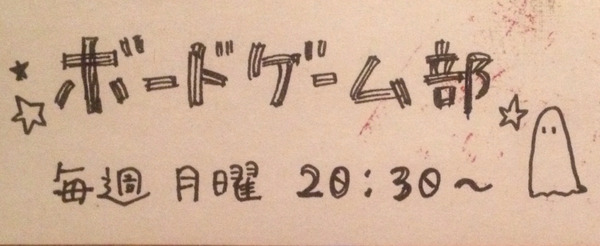 ボードゲーム部
毎週 月曜 20:30～